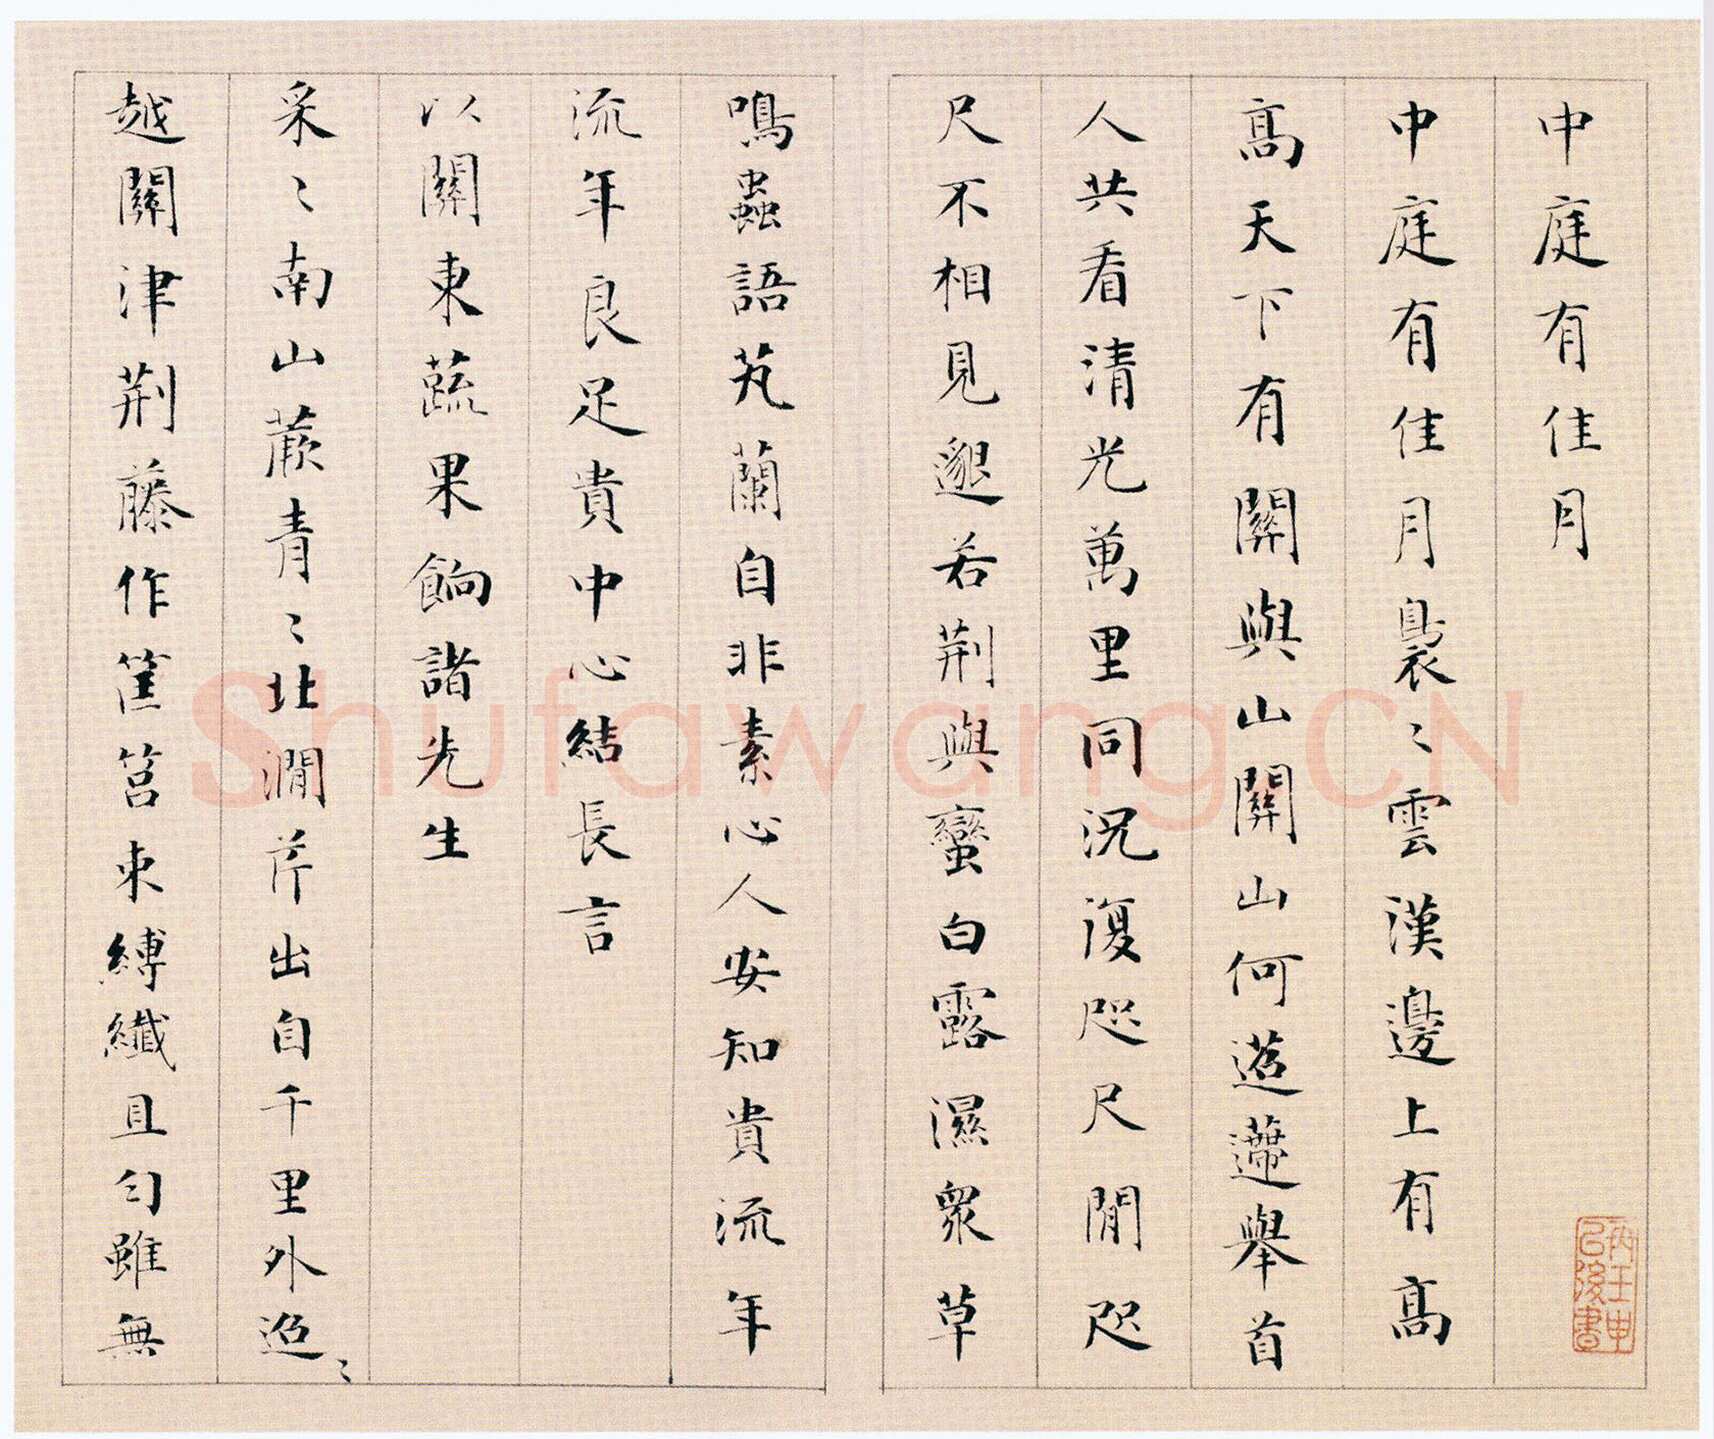 中庭有佳月
中庭有佳月裊〻雲漢邊上有高
高天下有關與山關山何迢遰舉首
人共看清光萬里同況復咫尺閒咫
尺不相見邈若荆與蠻白露濕衆草
鳴蟲語芄蘭自非素心人安知貴流年
流年良足貴中心結長言
以關東蔬果餉諸先生
采〻南山蕨青〻北澗芹出自千里外迢〻
越關津荆藤作筐筥束縛纖且勻雖無
Shufawang.CN